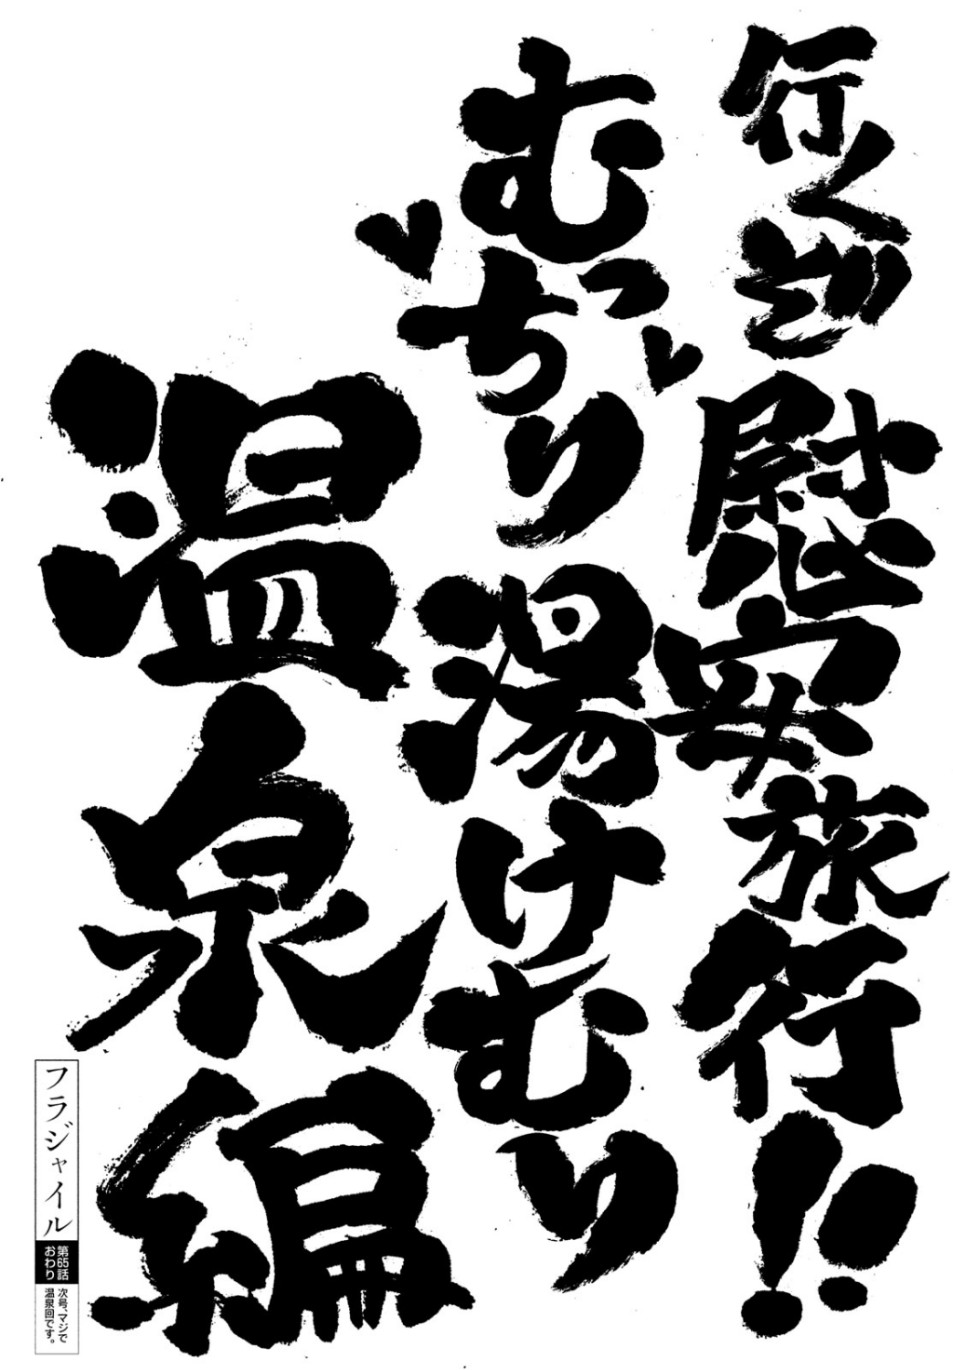 行くぞ慰安旅行!!
むっちり♥♥湯けむり
温泉編
フラジャイル
第65話
おわり
次号、マジで
温泉回です。